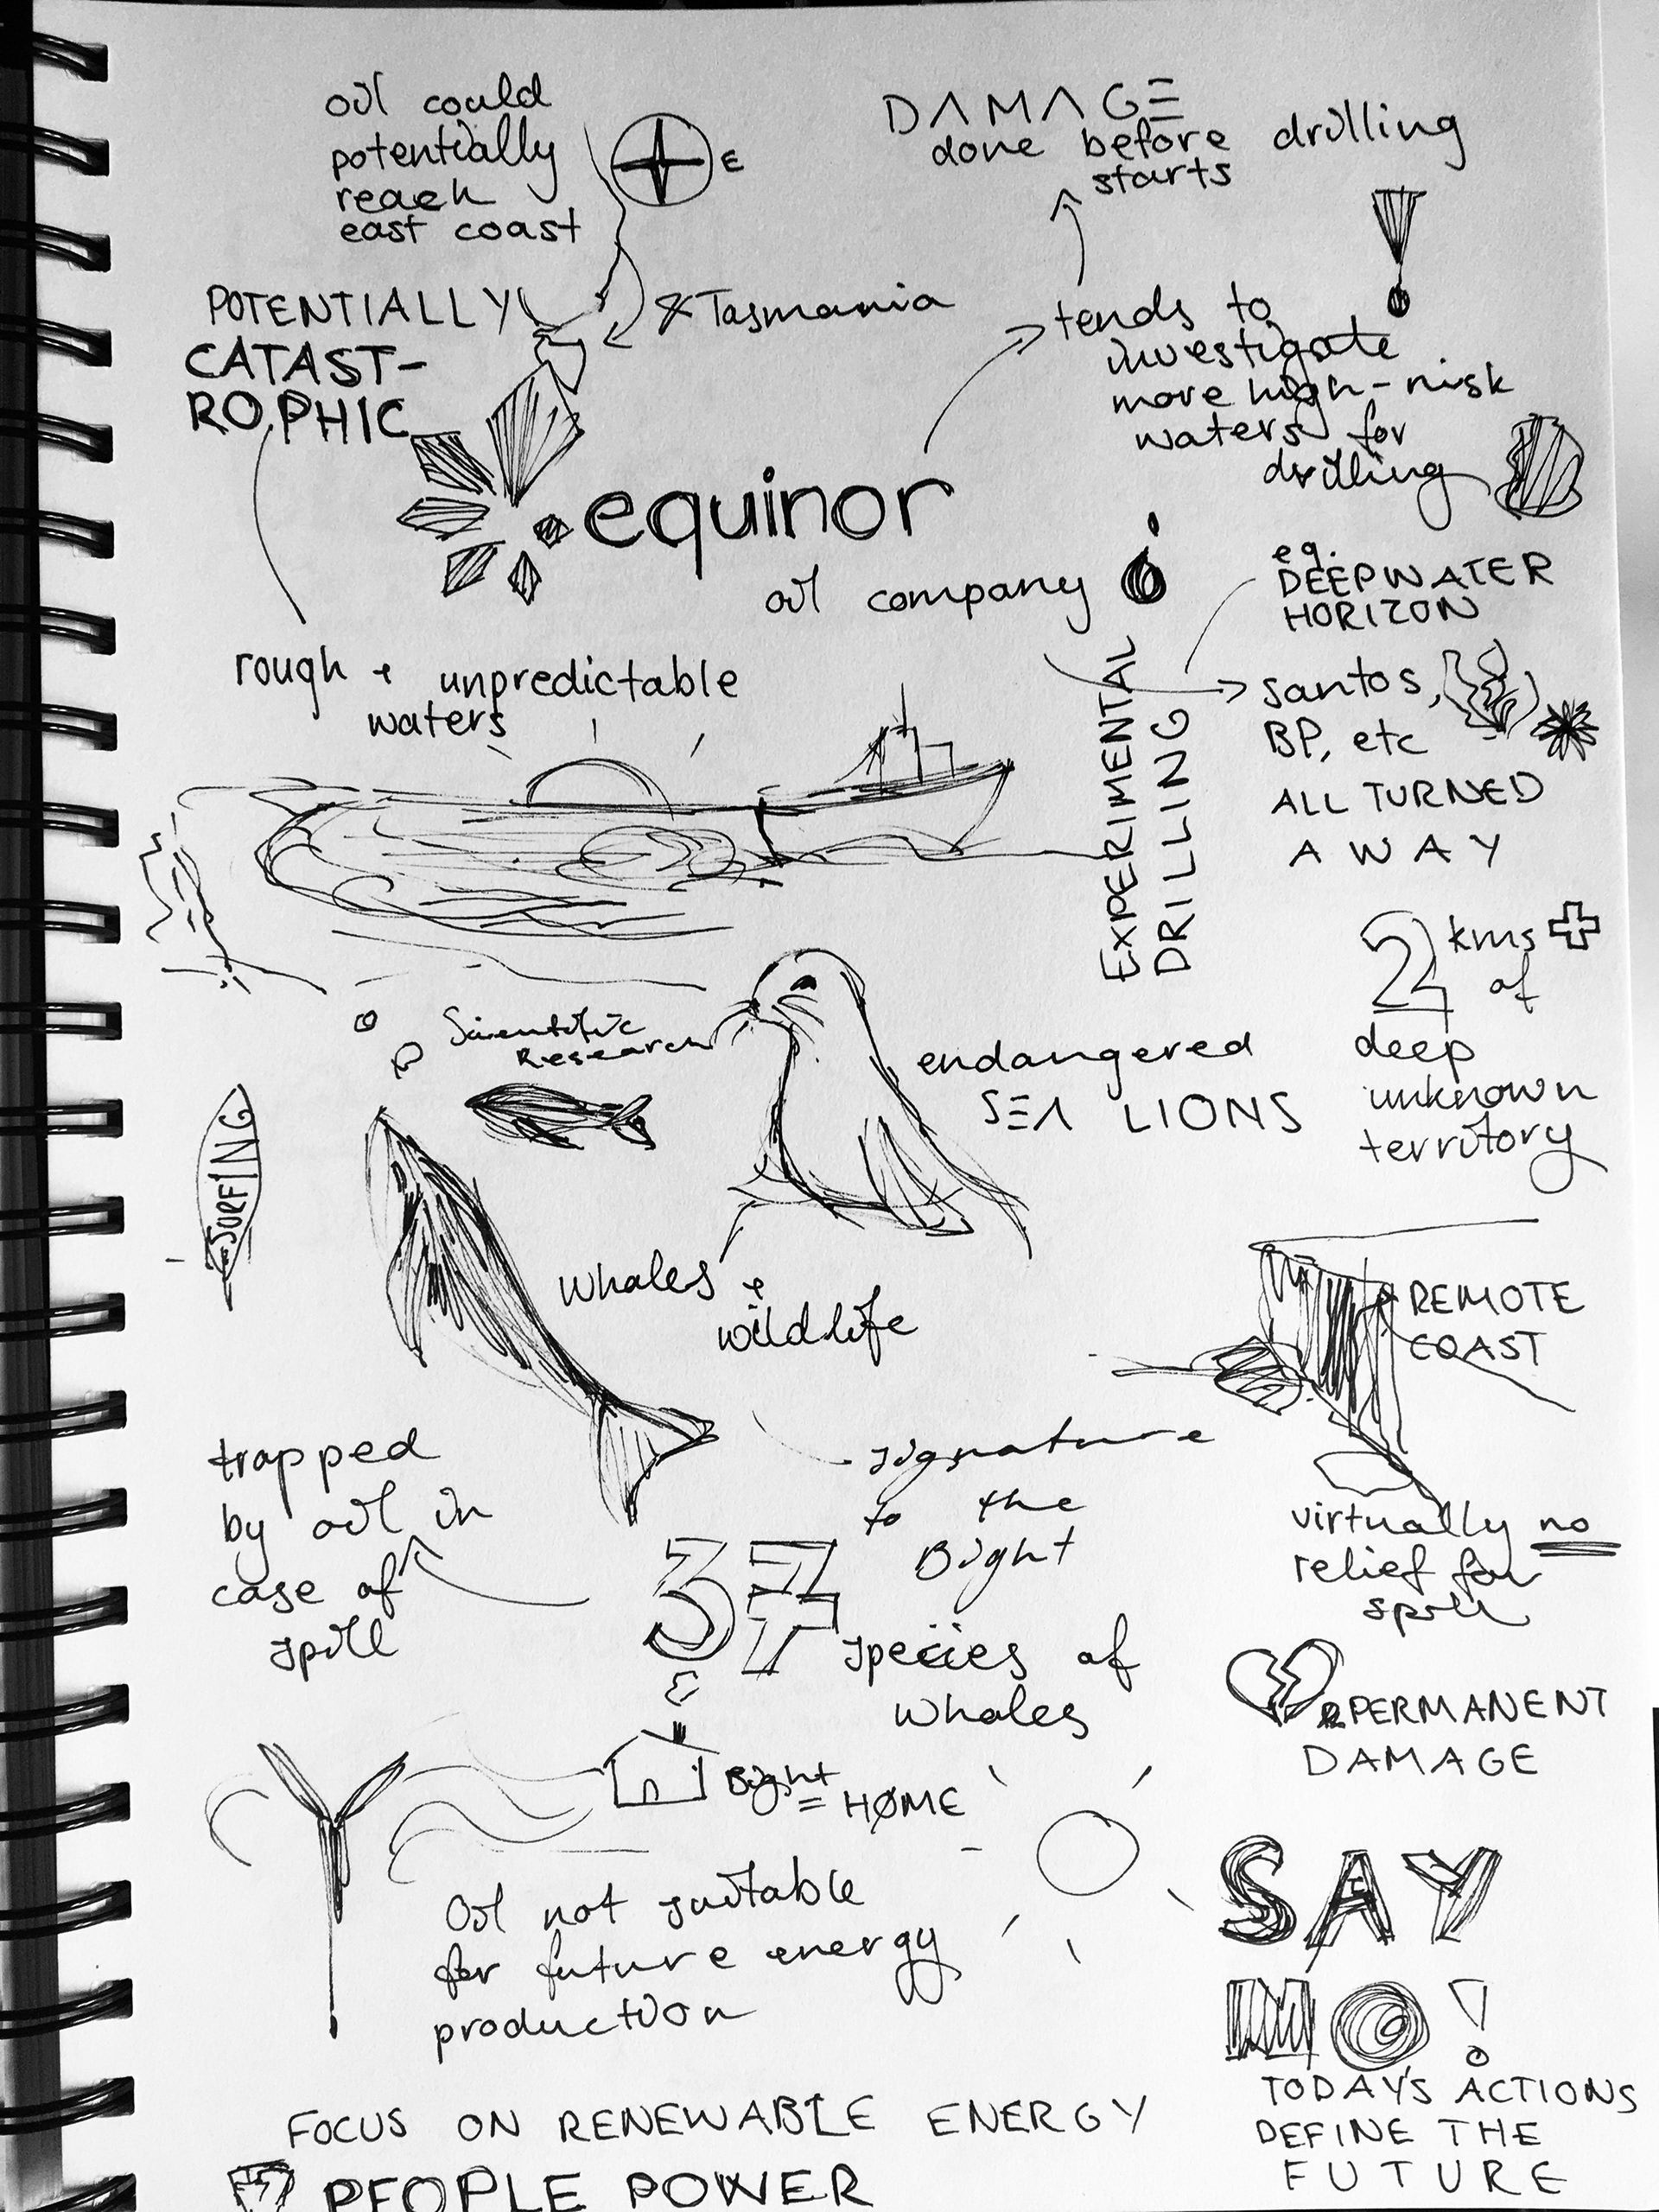 oil could
potentially
reach
east coast
E
DAMAGE
done before drilling
starts
& Tasmania
POTENTIALLY
CATAST-
ROPHIC
tends to
investigate
more high-risk
waters for
drilling
equinor
oil company
eg.
DEEPWATER
HORIZON
rough + unpredictable
waters
EXPERIMENTAL
DRILLING
santos,
BP, etc
ALL TURNED
AWAY
2 kms +
of
deep
unknown
territory
Scientific
Research
endangered
SEA LIONS
SURFING
whales +
wildlife
REMOTE
COAST
trapped
by oil in
case of
spill
signature
to the
Bight
virtually no
relief for
spill
37
species of
whales
PERMANENT
DAMAGE
Bight
= HOME
Oil not suitable
for future energy
production
SAY
NO!
TODAY'S ACTIONS
DEFINE THE
FUTURE
FOCUS ON RENEWABLE ENERGY
PEOPLE POWER